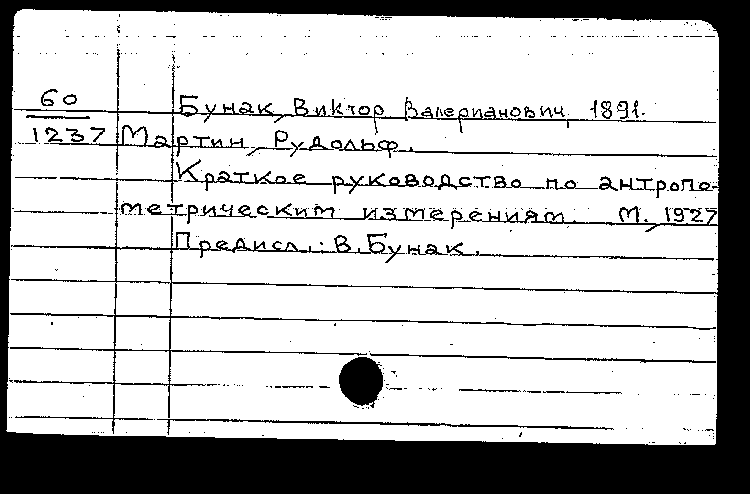 60 Бунак, Виктор Валерианович, 1891-
1237 Мартин, Рудольф.
Краткое руководство по антропо-
метрическим измерениям. М., 1927
Предисл.: В. Бунак.